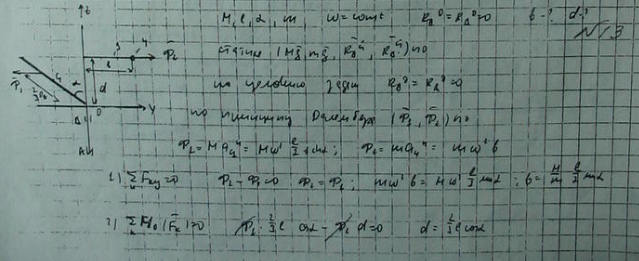 M, l, α, m ω = const R_B^D = R_A^D = 0 б - ? d - ?
№ 3
статике (Mg, mg, R_B^ст, R_A^ст) ∾ 0
по условию задачи R_B^D = R_A^D = 0
по принципу Даламбера (Φ̄₁, Φ̄₂) ∾ 0
Φ₁ = M a_c^n = M ω² l/2 sin α ; Φ₂ = m a^n = m ω² б
1) ∑ F_ky = 0 Φ₂ - Φ₁ = 0 Φ₁ = Φ₂ ; m ω² б = M ω² l/2 sin α ; б = M/m l/2 sin α
2) ∑ M₀ (F̄_k) = 0 Φ₁ · 2/3 l cos α - Φ₂ d = 0 d = 2/3 l cos α
z
Φ̄₂
Φ̄₁
α
d
y
O
B
A